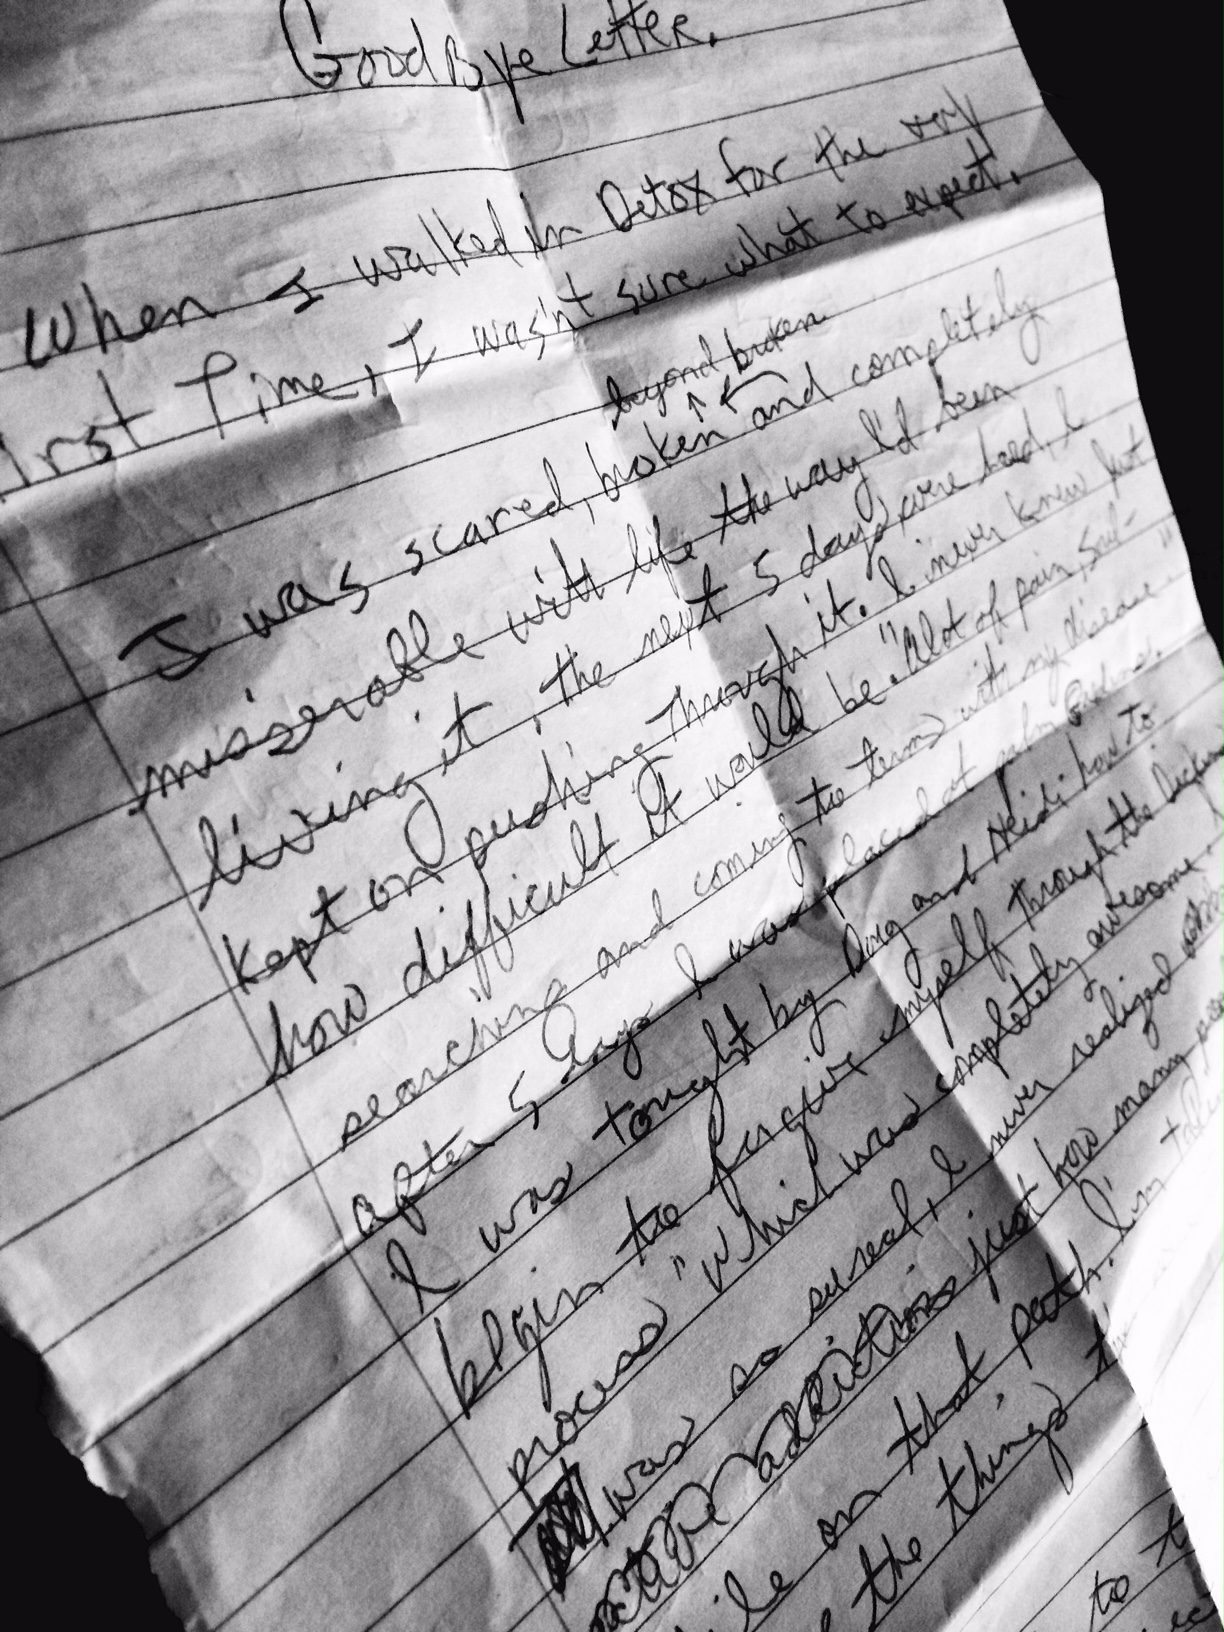 GoodBye Letter.
When I walked in Detox for the very
irst Time, I wasn't sure what to expect.
beyond broken
I was scared, broken and completely
misserable with life the way I'd been
living it, the next 5 days were hard, I
kept on pushing Through it. I never knew just
how difficult it would be. "Alot of pain, soul-
searching and coming too terms with my disease."
after 5 days I was placed at palm
I was tought by Doug and Heidi how to
begin too forgive myself through the
process "which was completely awesome.
was so surreal, I never realized
active addictions just how many
on that path. I'm
the things
to